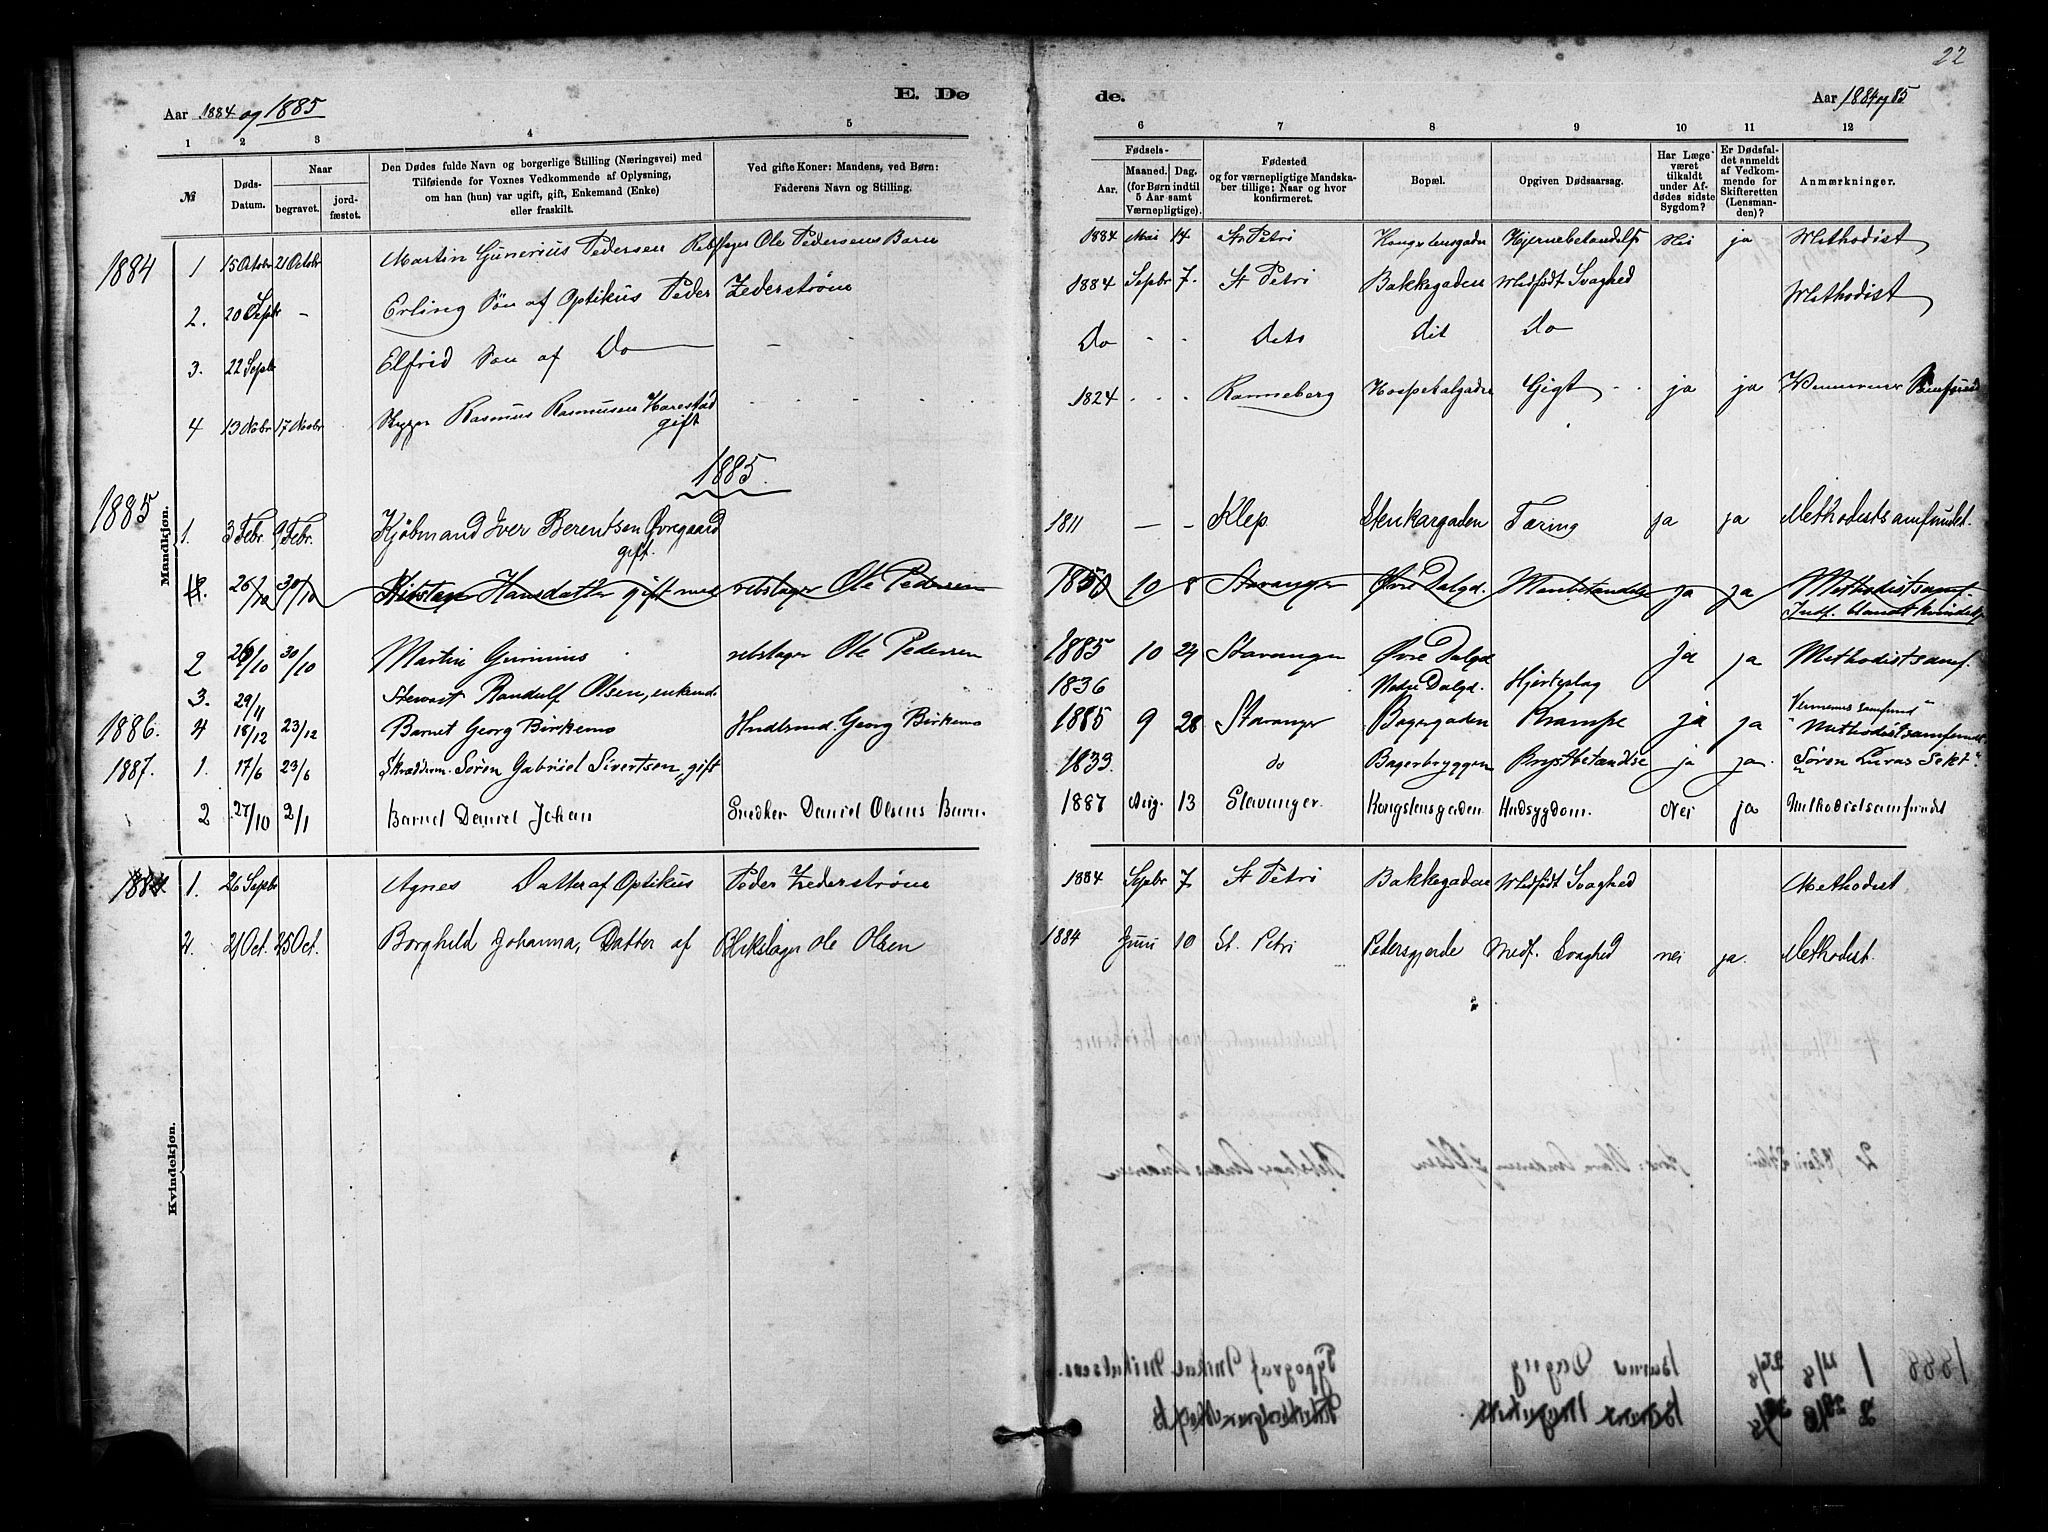 22
Aar 1884 og 1885 E. Dø de. Aar 1884 og 85
1 2 3 4 5 6 7 8 9 10 11 12
№ Døds-Datum. Naar begravet. jordfæstet. Den Dødes fulde Navn og borgerlige Stilling (Næringsvei) med Tilføiende for Voxnes Vedkommende af Oplysning, om han (hun) var ugift, gift, Enkemand (Enke) eller fraskilt. Ved gifte Koner: Mandens, ved Børn: Faderens Navn og Stilling. Fødsels- Aar. Maaned. Dag. (for Børn indtil 5 Aar samt Værnepligtige). Fødested og for værnepligtige Mandskaber tillige: Naar og hvor konfirmeret. Bopæl. Opgiven Dødsaarsag. Har Læge været tilkaldt under Afdødes sidste Sygdom? Er Dødsfaldet anmeldt af Vedkommende for Skifteretten (Lensmanden)? Anmærkninger.
Mandkjøn.
1884 1 15 Octobr 21 Octobr Martin Gunerius Pedersen Rebslager Ole Pedersens Barn 1884 Mai 14 St Petri Kongstensgaden Hjernebetændelse Nei ja Methodist
2. 20 Septbr - Erling Søn af Optikus Peder Zederstrøm 1884 Sepbr 7. St Petri Bakkegaden Medfødt Svaghed Methodist
3. 22 Septbr Elfrid Søn af Do Do - - Dets dit Do
4 13 Nobr 17 Novbr Rasmus Rasmussen Harestad gift 1824 Ranneberg Hospetalgaden Gigt ja ja Samfund
1885.
1885 1. 3 Febr. 9 Febr. Kjøbmand Iver Berentsen Øvregaard gift. 1811 - - Klep. Stenkargaden Tæring ja ja Methodistsamfundet.
26/10 30/10 Hansdatter gift med rebslager Ole Pedersen 10 8 Stavanger Øvre Dalgd. ja ja Methodistsamf. Indf. blandt kvindekj.
2 26/10 30/10 Martin Gunnius rebslager Ole Pedersen 1885 10 24 Stavanger Øvre Dalgd Ja ja Methodistsamf.
3. 29/11 Stewart Randulf Olsen, enkemd. 1836 Nedre Dalgd. Hjerteslag Samfund
1886. 4 18/12 23/12 Barnet Georg Birkemo Georg Birkemo 1885 9 28 Stavanger Bagergaden Krampe ja ja Methodistsamfundet
1887. 1. 17/6 23/6 Skræddern. Søren Gabriel Sivertsen, gift 1833. do Bagerbryggen Brystbetændlse ja ja. Søren Luras Sekt
2 27/10 2/1 Barnet Daniel Johan Snedker Daniel Olsens Barn. 1887 Aug. 13 Stavanger. Kongstensgaden Hudsygdom. Nei ja Methodistsamfundet
Kvindekjøn.
1884 1. 26 Sepbr Agnes Datter af Optikus Peder Zederstrøm 1884 Sepbr 7 St Petri Bakkegaden Medfødt Svaghed Methodist
2. 21 Oct. 25 Oct. Borghild Johanna, Datter af Blikslager Ole Olsen 1884 Juni 10 St. Petri Pedersgjerde Medf. Svaghed nei ja. Methodist.